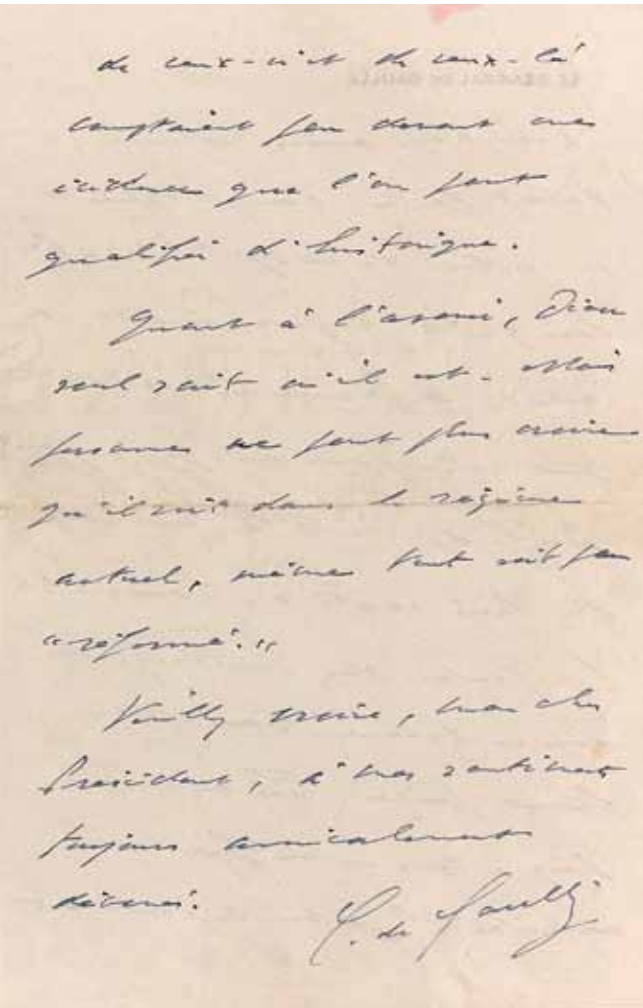 de ceux-ci et de ceux-là
comptaient peu devant une
évidence que l'on peut
qualifier d'historique.
Quant à l'avenir, Dieu
seul sait où il est. Mais
personne ne peut plus croire
qu'il soit dans le régime
actuel, même tant soit peu
"réformé."
Veuillez croire, mon cher
Président, à mes sentiments
toujours amicalement
dévoués.
C. de Gaulle